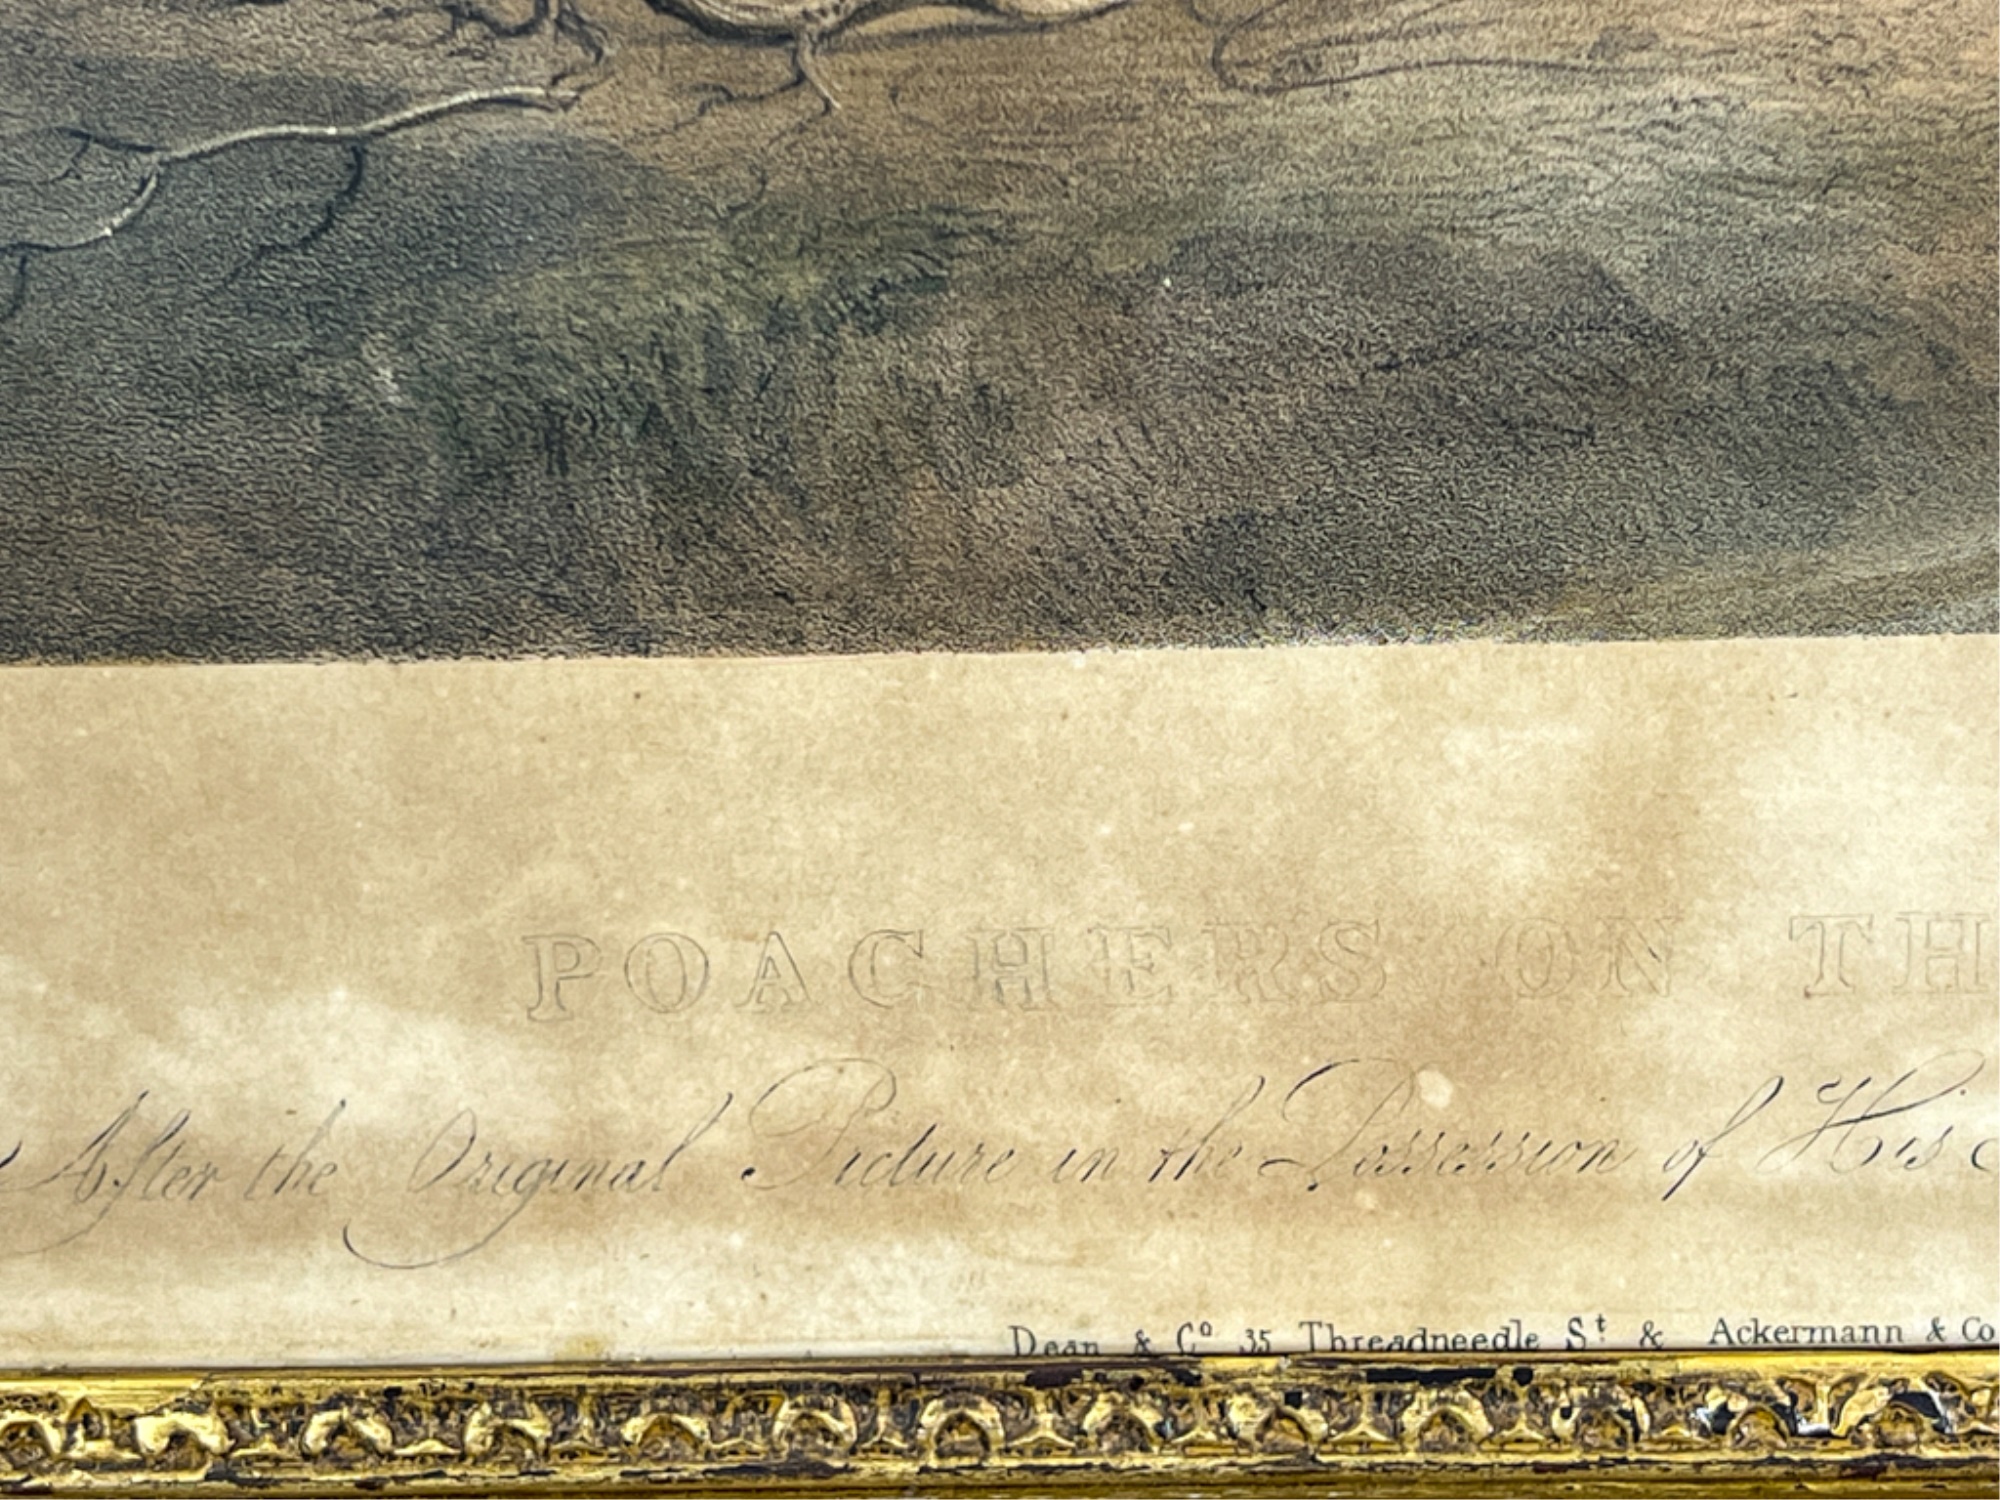 POACHERS ON TH
After the Original Picture in the Possession of His
Dean & Co 35 Threadneedle St & Ackermann & Co